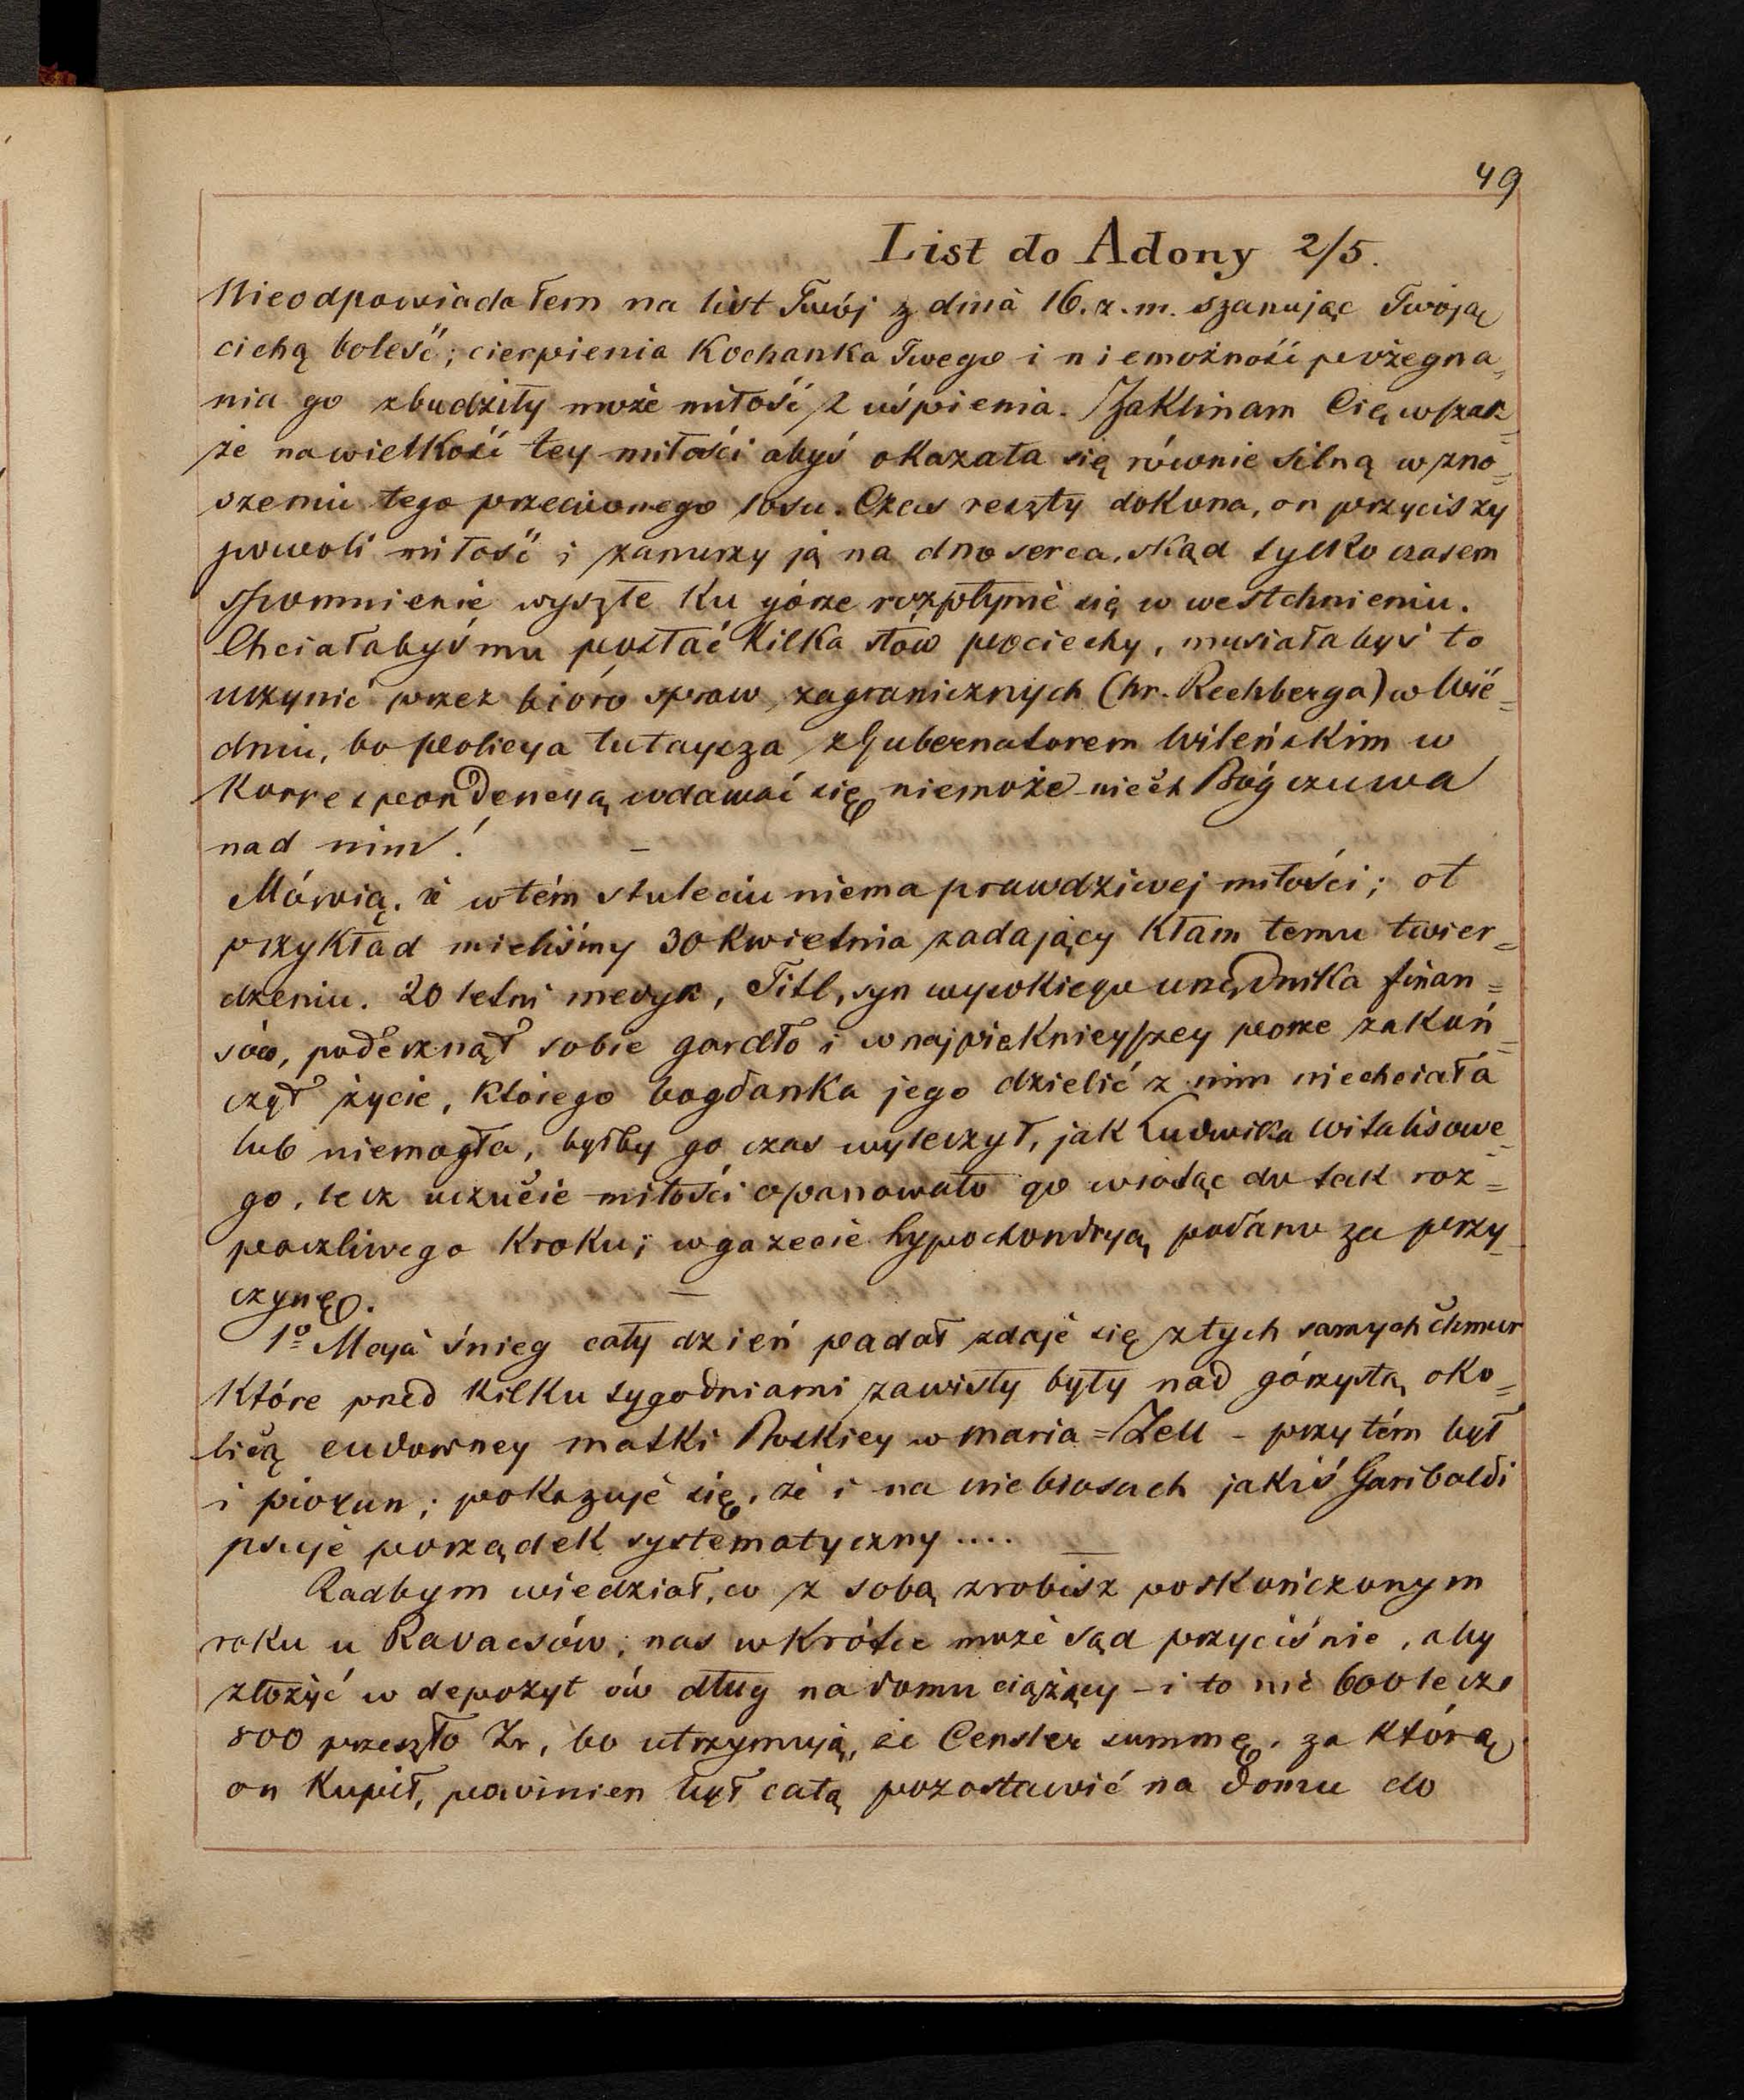 49
List do Adony 2/5.
Nieodpowiadałem na list Twój z dniá 16. z. m. szanując Twoją
cichą boleść; cierpienia Kochanka Twego i niemożność pożegna=
nia go zbudziły może miłość z uśpienia. Zaklinam Cię wszak=
że na wielkość tey miłości abyś okazała się równie silną w zno=
szeniu tego przeciwnego losu. Czas reszty dokona, on przyciszy
powoli miłość i zanurzy ją na dno serca, skąd tylko czasem
spomnienie wyszłe ku górze rozpłynie się w westchnieniu.
Chciałabyś mu posłać kilka słów pociechy, musiałabyś to
uczynić przez bióro spraw zagranicznych (hr. Rechberga) w Wié=
dniu, bo policya tutaysza z Gubernatorem Wileńskim w
Korrespondencyą wdawać się niemoże niech Bóg czuwa
nad nim! —
Mówią, że w tém stuleciu niema prawdziwej miłości; ot
przykład mieliśmy 30 Kwietnia zadający kłam temu twier=
dzeniu. 20 letni medyk, Titl, syn wysokiego urzędnika finan=
sów, poderznął sobie gardło i w najpiękniejszey porze zakoń=
czył życie, którego bogdanka jego dzielić z nim niechciała
lub niemogła, byłby go czas wyleczył, jak Ludwika Witalisowe=
go, lecz uczucie miłości opanowało go wiodąc do tak roz=
paczliwego kroku; w gazecie hypochondryą podano za przy=
czynę. —
1º Maya śnieg cały dzień padał zdaje się z tych samych chmur
które przed kilku tygodniami zawisły były nad górzystą oko=
licą cudowney matki Boskiey w Maria=Zell - przy tém był
i piorun; pokazuje się, że i na niebiosach jakiś Garibaldi
psuje porządek systematyczny .... —
Radbym wiedział, co z sobą zrobisz po skończonym
roku u Ravacsów; nas wkrótce może sąd przyciśnie, aby
złożyć w depozyt ów dług na domu ciążący - i to nie 600 lecz
800 przeszło Zr, bo utrzymują, że Censler summę, za którą
on kupił, powinien był całą pozostawić na domu do